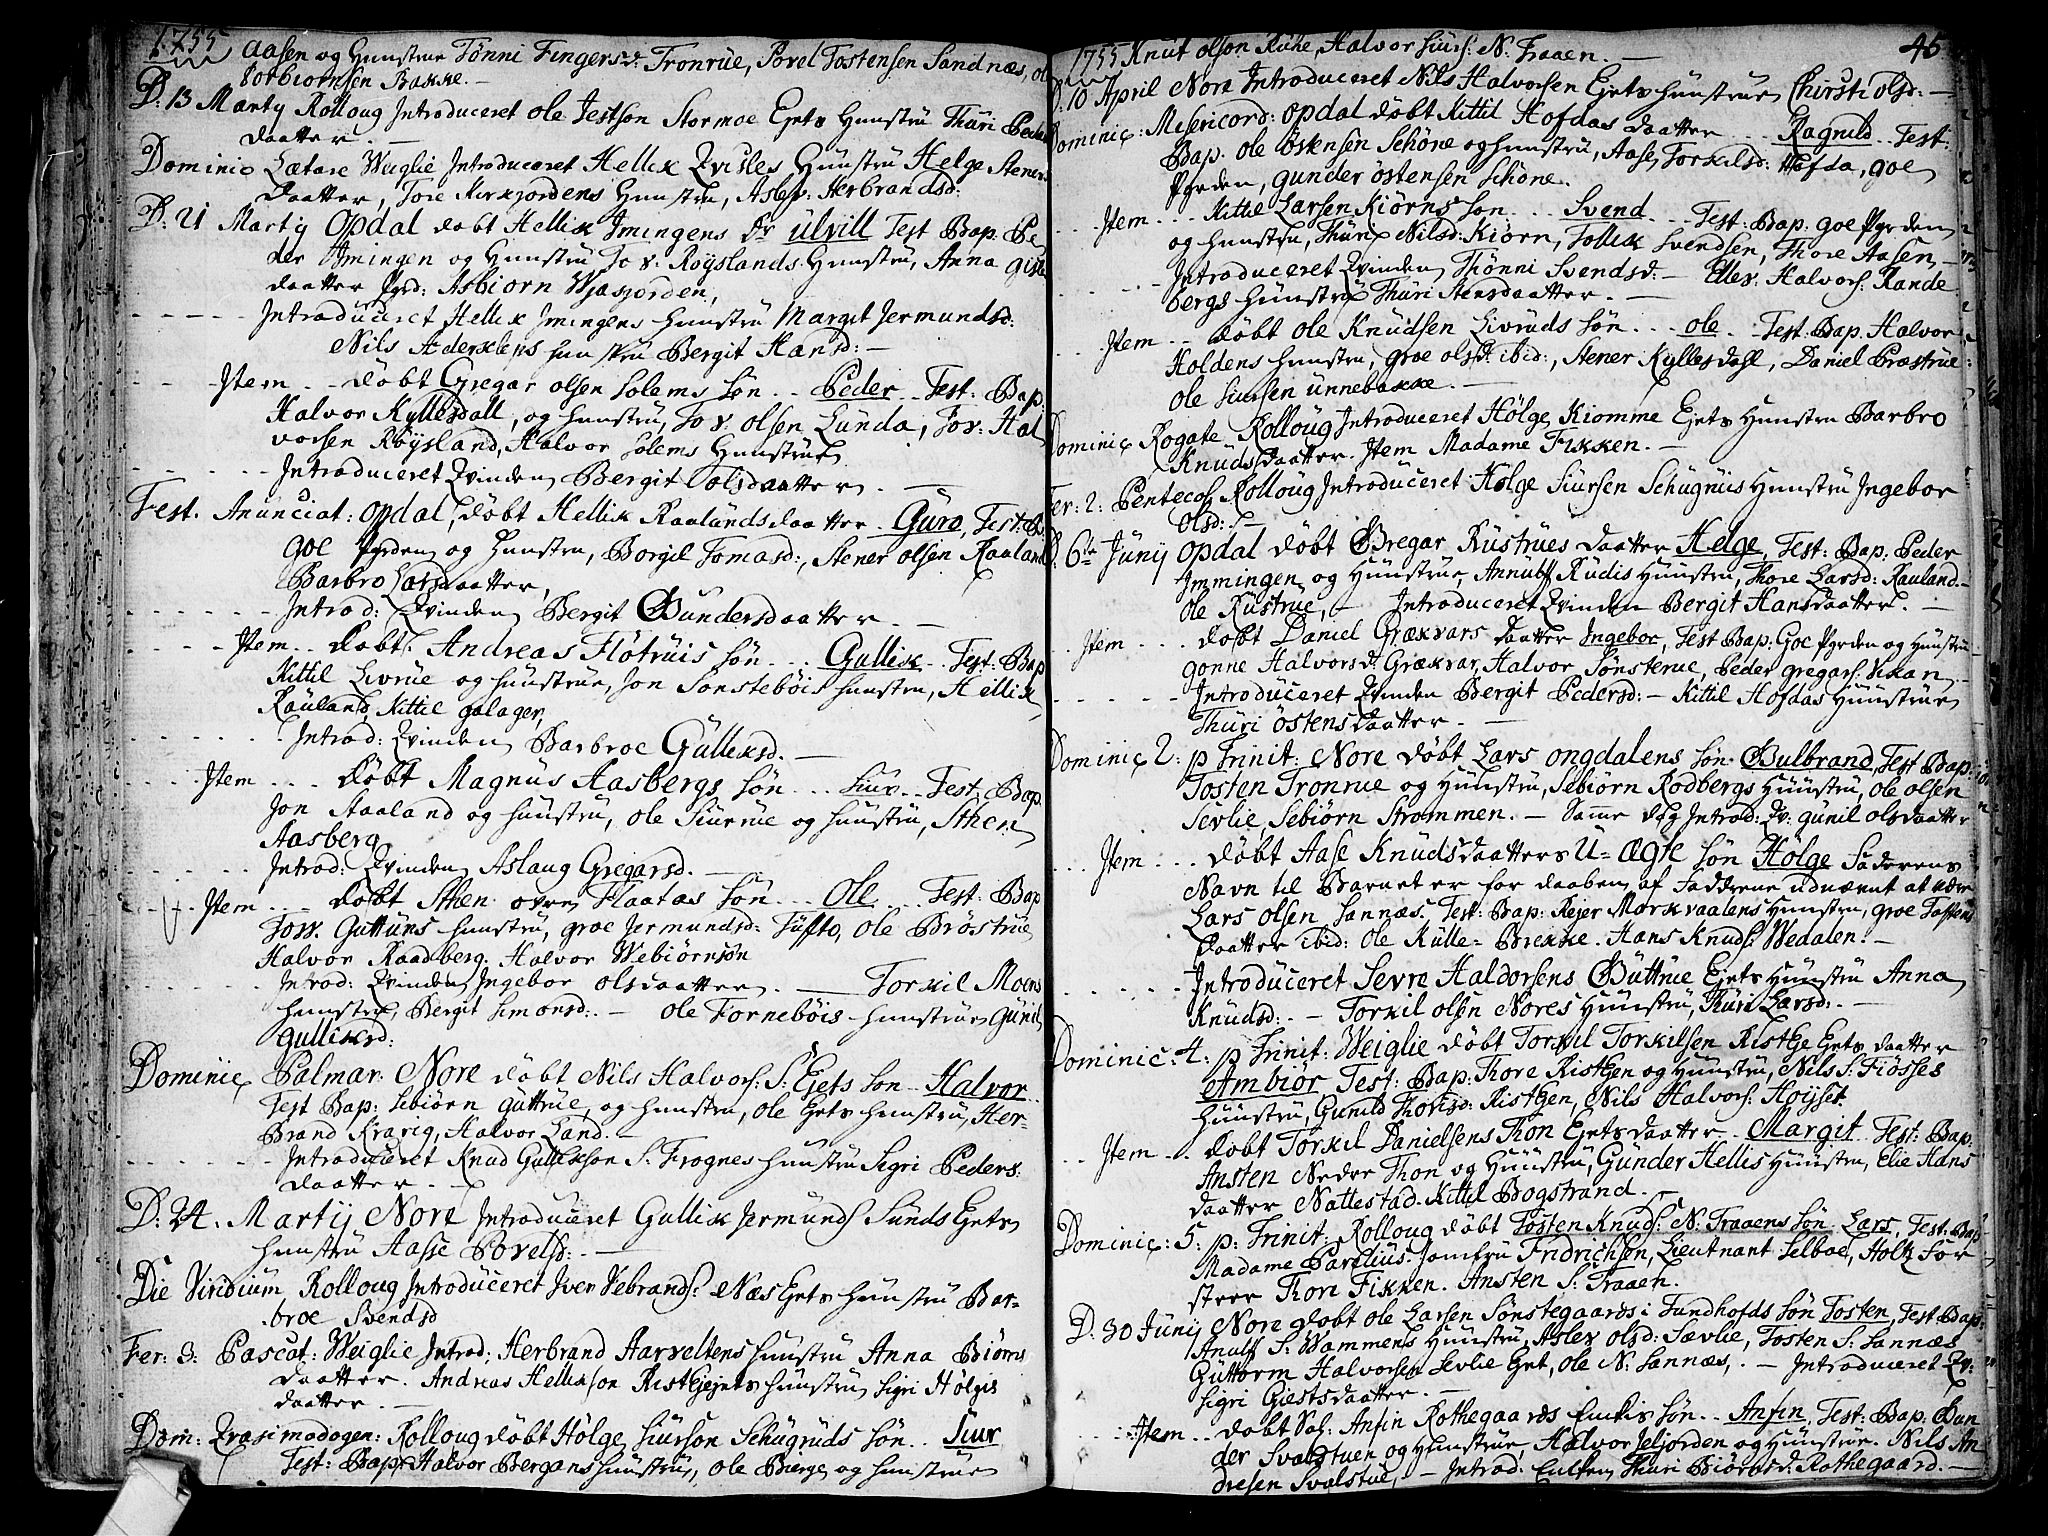 1755 Aasen og Hunstrue Tønni Fingersd: Tronrüe, Povel Tostensen Sandnæs, ole
Torbiørnsen Bakke. —
D: 13 Martÿ Rolloug Introduceret ole Jestson Stormoe Ejets Hunstrü Thüri Peders
daatter. —
Dominic Lætare Weiglie Introduceret Hellik Qvisles Hünstrü Helge Steners
Daatter, Tore Kirkjordens Hunstrü, Aslev Herbrandsd:
D: 21 Martÿ Opdal døbt Hellik Imingens Dr ülvill Test Bap: Pe
der Imingen og Hünstrü Tov Røyslands Hünstrü, Anna Gisle
daatter Pgrd: Asbiørn Wjasjorden,
- - - - - Introduceret Hellik Imingens hunstrü Margit Jermundsd:
Nils Aderklens hunstrü Bergit Hansd: —
- - - Item - - døbt Gregar olsen Solems Søn - - Peder - - Test: Bap.
Halvor Kyllesdall, og hunstrü, Tov olsen Lünda, Tov Hal
vorsen Røysland, Halvor Solems Hunstrue
- - - - - Introduceret Qvinden Bergit Tolsdaatter. —
Fest. Anünciat: Opdal, døbt Hellik Raalands daatter Gürö, Test: B.
goe Pgrden og Hunstrü, Borgil Tomasd:, Stener olsen Raaland
Barbro Larsdaatter,
- - - - - Introd: Qvinden Bergit Gundersdaatter. —
- - - Item - - døbt Andreas Fløtrüis søn - - - Gullik - - Test: Bap
Kittil Livrüe og hüüstrue, Jon Sønstebøis hünstrü, Hellik
Raüland, Kittil golager,
- - - - - Introd: Qvinden Barbroe Gülleksd. —
- - - Item - - - døbt Magnus Aasbergs søn - - - Siur - - Test: Bap.
Jon Staaland og hünstrü, ole Siurrüe og hünstrü, Sthen
Aasberg
- - - - - Introd: Qvinden Aslaug Gregarsd. —
- - - Item - - - døbt Sthen øvre Flaatas Søn - - - Ole - - - Test: Bap
Tov Guttüns hünstrü, groe Jermundsd: Tüfto, ole Brøstrüe
Halvor Raadberg. Halvor Webiørnsøn
- - - - - Introd: Qvinden Ingebor olsdaatter. — Torkil Moens
hunstrue Bergit Simonsd:. — ole Fornebøis hunstrue Günil
Gulliksd:
Dominic Palmar: Nore døbt Nils Halvors: S: Ejets søn - - Halvor
Test Bap: Sebiørn Güttrue, og hunstrü, ole Ejets hunstrü, Her-
Brand Kravig, Halvor Land. —
- - - - - Introduceret Knud Gulliksøn S: Frognes hünstrü Sigri Peders:
daatter. —
D: 24. Martÿ Nore Introduceret Gullik Jermunds Sünds Ejets
hünstrü Aasse Povelsd:. —
Die Viridium Rolloug Introduceret Iver Vebrands: Næs Ejets hünstrü Bar-
broe Svendsd
Fer: 3: Pascat: Weiglie Introd: Herbrand Aarveltens hünstrü Anna Biørns
daatter. Andreas Hellikson Ristge ejets hünstrü Sigri Hølgis
daatter. —
Dom: Qvasimodogen: Rolloug døbt Hølge Siurson Schügrüds søn - - Siur
Test: Bap: Halvor Bergans hünstrüe, ole Bierge og hunstrue
1755 Knut olson Rühe, Halvor Siurs: N: Traaen. — 45
D. 10 April Nore Introduceret Nils Halvorsen Ejets hüüstrue Christi olsd: —
Dominic: Misericord: Opdal døbt Kittil Hofdas daatter - - - Ragnild - - Test:
Bap. ole Østensen Schøne og hunstrü, Aase Torkilsd: Hofda, goe
Pgrden, gunder østensen Schøne.
- - - Item - - - Kittil Larsen Kiørns søn - - - Svend - - - Test: Bap: goe Pgrden
og hunstrü, Thüri Nilsd: Kiørn, Tollek Svendsen, Thore Aasen -
- - - - - Introduceret Qvinden Thønni Svendsd: — Ellev Halvors: Rande
bergs hünstrü Thüri Stensdaatter. —
- - - Item - - døbt ole Knüdsen Livrüds søn - - - ole - - Test: Bap. Halvor
Holdens hünstrü, groe olsd: ibid:, Stener Kyllesdahl, Daniel Præstrüe:
ole Siursen ünnebakke. —
Dominic Rogate - Rolloug Introduceret Hølge Kiomme Ejets Hunstrü Barbro
Knüdsdaatter. Item Madame Fikken. —
Fer: 2: Pentecos: Rolloug Introduceret Hølge Siursen Schugrüs Hunstrü Ingebor
olsd: —
D. 6te Jünÿ Opdal døbt Gregar Rüstrües daatter Helge, Test: Bap: Peder
Immingen og Hünstrue, Annulf Rudis Hüüstrü, Thore Larsd: Rauland -
ole Rustrüe, — Introduceret Qvinden Bergit Hansdaatter. —
- - Item - - - døbt Daniel Grækvars daatter Ingebor, Test Bap: Goe Pgrden og Hunstrü
gonne Halvorsd: Grækvar, Halvor Sønsterüe, Peder gregars: Vikan, -
- - - - - Introduceret Qvinden Bergit Pedersd: — Kittil Hofdas Hüüstrue
Thüri Østensdaatter. —
Dominic 2: p Trinit: Nore døbt Lars ongdalens søn Gulbrand, Test Bap:
Tosten Tronrüe og Hüüstrü, Sebiørn Rodbergs Hüüstrü, ole olsen
Sevlie Sebiørn Strømmen. — Samme dag Introd: Qv: günil olsdaatter
- - - Item - - - døbt Aase Knüdsdaatters U= Ægte søn Hølge Faderens
Navn til Barnet er for daaben af Faddrene udnævnt at være
Lars olsen Sannæs. Test: Bap: Rejer Morkvaalens Hünstrü, groe Tostens
Daatter ibid: ole Külle= Brekke. Hans Knuds: Wedalen. —
- - - - - Introduceret Sevre Haldorsens Güttrue Ejets Hüüstrü Anna
Knudsd: . — Torkil olsen Nores Hüüstrü, Thüri Larsd:. —
Dominic: 4: p Trinit: Weiglie døbt Torkil Torkilsen Ristge Ejets daatter
Ambiør Test: Bap: Thore Ristgen og Hüüstrü, Nils S: Fiøsses
Hüüstrü, Gunild Thorisd: Ristgen, Nils Halvors: Høyset.
- - Item - - døbt Torkil Danielsens Thon Ejets daatter - Margit - Test: Bap.
Ansten Neder Thon og Hüüstrü, Gunder Hellis Hüüstrü, Elie Hans
daatter Nattestad. Kittil Bogstrand. —
Dominic: 5: p: Trinit: Rolloug døbt Tosten Knuds: N: Traaens søn Lars, Test: Bap
Madame Parelius. Jomfrü Fridrichsen, Lieutnant Selboe, Holtz For
ster Thon Fikken. Ansten S: Traaen.
D: 30 Jünÿ Nore døbt ole Larsen Sønstegaards i Tundhofds søn Tosten, Test: Bap:
Anulf S: Wammens Hünstrü, Aslev olsd: Sævlie, Tosten S: Sannæs
Güttorm Halvorsen Sevlie Ejet, ole N: Sannæs,. — Introduceret Qv:
Sigri Giestsdaatter. —
- - - Item - - døbt Sal: Anfin Rothegaards Enkis søn - - Anfin, Test: Bap: Gun
der Svalstuen og Hunstrue, Halvor Seljorden og Hunstrue. Nils An
dresen Svalstüe, — Introd: Enken Thüri Biørnsd: Rothegaard. —